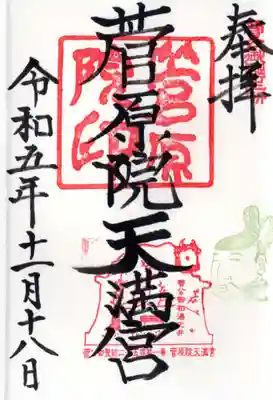 奉拝
菅原院天満宮
令和五年十一月十八日
菅原院印